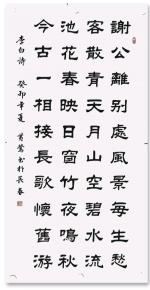 謝公離別處風景每生愁
客散青天月山空碧水流
池花春映日窗竹夜鳴秋
今古一相接長歌懷舊游
李白詩 癸卯年夏 书於長春